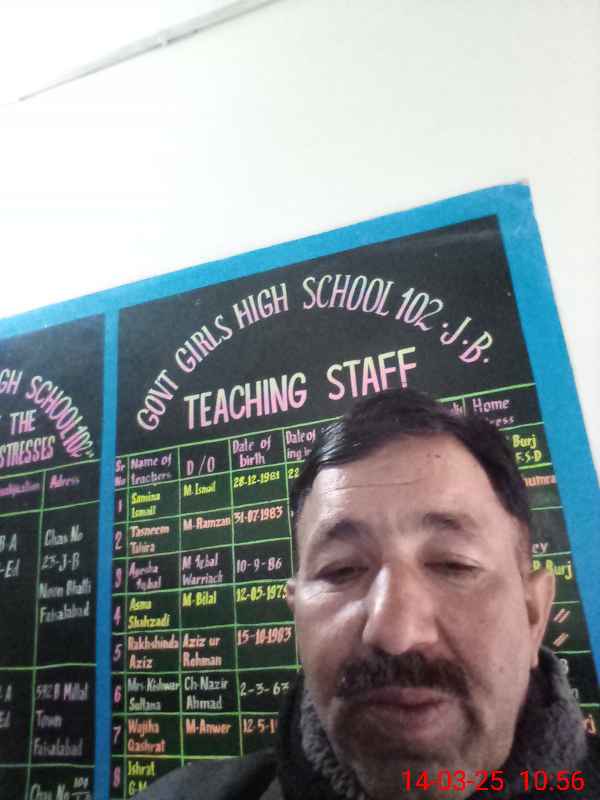 GH SCHOOL 102
THE
STRESSES
Adress
Chas No
23-J-B
Noon Bhatti
Faisalabad
592 B Millat
Town
Faisalabad
Chas No 104
GOVT GIRLS HIGH SCHOOL 102.J.B.
TEACHING STAFF
Sr No Name of teachers D/O Date of birth Date of Home
1 Samina Ismail M. Ismail 28-12-1981 22 Burj F.S.D
2 Tasneem Tahira M-Ramzan 31-07-1983
3 Ayesha Iqbal M-Iqbal Warriach 10-9-86
4 Asma Shahzadi M-Bilal 12-05-197 Burj
5 Rakhshinda Aziz Aziz ur Rehman 15-10-1983 //
6 Mrs. Kishwar Sultana Ch-Nazir Ahmad 2-3-63
7 Wajiha Qashrat M-Anwer 12-5-1
8 Ishrat
14-03-25 10:56